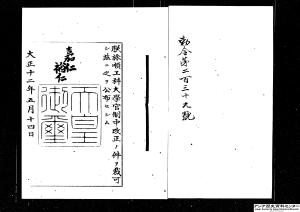 勅令第二百三十九號
朕旅順工科大學官制中改正ノ件ヲ裁可
シ茲ニ之ヲ公布セシム
嘉仁
裕仁
天皇
御璽
大正十二年五月十四日
アジア歴史資料センター